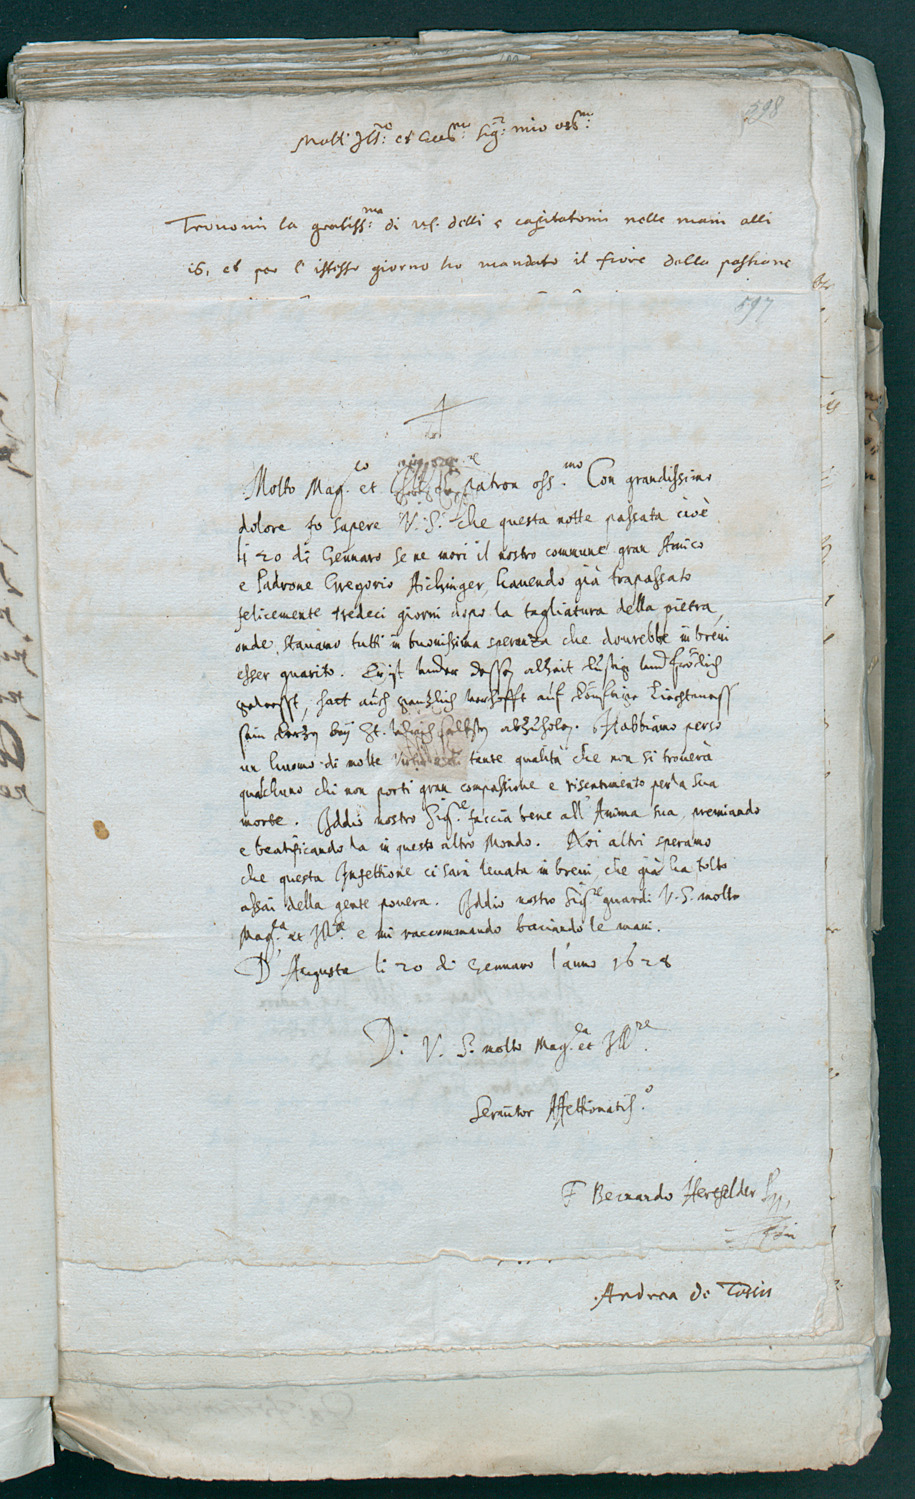 298
Molt' Ill.ro et Ecc.mo Sig.r mio oss.mo
Trovomi la gratiss.ma di VS. delli e capitatomi nelle mani alli
16, et per l'istesso giorno ho mandato il fiore della passione
597
Molto Mag.co et patron oss.mo Con grandissimo
dolore fo sapere V. S. che questa notte passata cioè
li 20 di Gennaro se ne morì il nostro commune gran Amico
e Padrone Gregorio Aichinger, havendo già trapassato
felicemente tredeci giorni dopo la tagliatura della pietra,
onde stavamo tutti in buonissima speranza che dovrebbe in brevi
esser guarito. Er ist under dessen alzeit lustig und frölich
gewesst, hatt auch gentzlich verhofft auf künftige Liechtmess
sein kertzen bey St. Ulrich selbsten abzuholen. Habbiamo perso
un huomo di molte virtù e di tante qualità che non si troverà
qualchuno chi non porti gran compassione e risentimento per la sua
morte. Iddio nostro Sig.re faccia bene all'Anima sua, premiando
e beatificandola in questo altro Mondo. Noi altri speramo
che questa Infettione ci sarà levata in brevi, che già ha tolto
assai della gente povera. Iddio nostro Sig.re guardi V. S. molto
Mag.ca et Ill.re e mi raccommando baciando le mani.
D'Augusta li 20 di Gennaro l'anno 1628
Di V. S. molto Mag.ca et Ill.re
Servitor Affettionatiss.o
F Bernardo Hertfelder
Andrea de